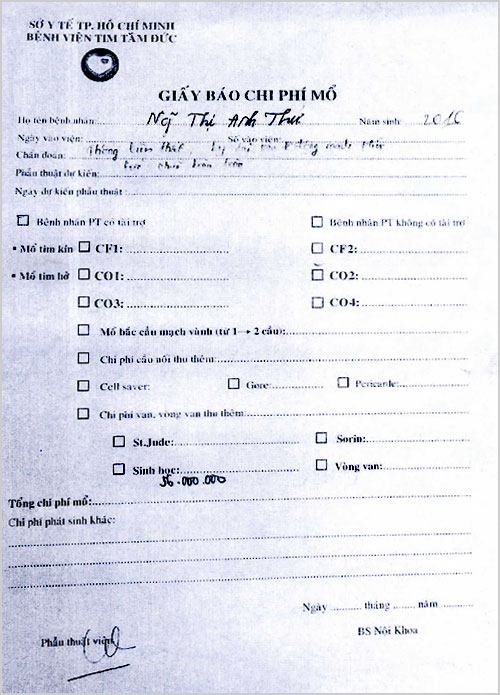 SỞ Y TẾ TP. HỒ CHÍ MINH
BỆNH VIỆN TIM TÂM ĐỨC
GIẤY BÁO CHI PHÍ MỔ
Họ tên bệnh nhân: Ngô Thị Anh Thư Năm sinh: 2016
Ngày vào viện: Số vào viện:
Chẩn đoán: Thông liên thất
Phẫu thuật dự kiến:
Ngày dự kiến phẫu thuật:
Bệnh nhân PT có tài trợ Bệnh nhân PT không có tài trợ
• Mổ tim kín CF1: CF2:
• Mổ tim hở CO1: CO2:
CO3: CO4:
Mổ bắc cầu mạch vành (từ 1→2 cầu):
Chi phí cầu nối thứ thêm:
Cell saver: Gore: Pericarde:
Chi phí van, vòng van thứ thêm:
St.Jude: Sorin:
Sinh học: Vòng van:
56.000.000
Tổng chi phí mổ:
Chi phí phát sinh khác:
Ngày .......... tháng ....... năm ..........
Phẫu thuật viên BS Nội Khoa